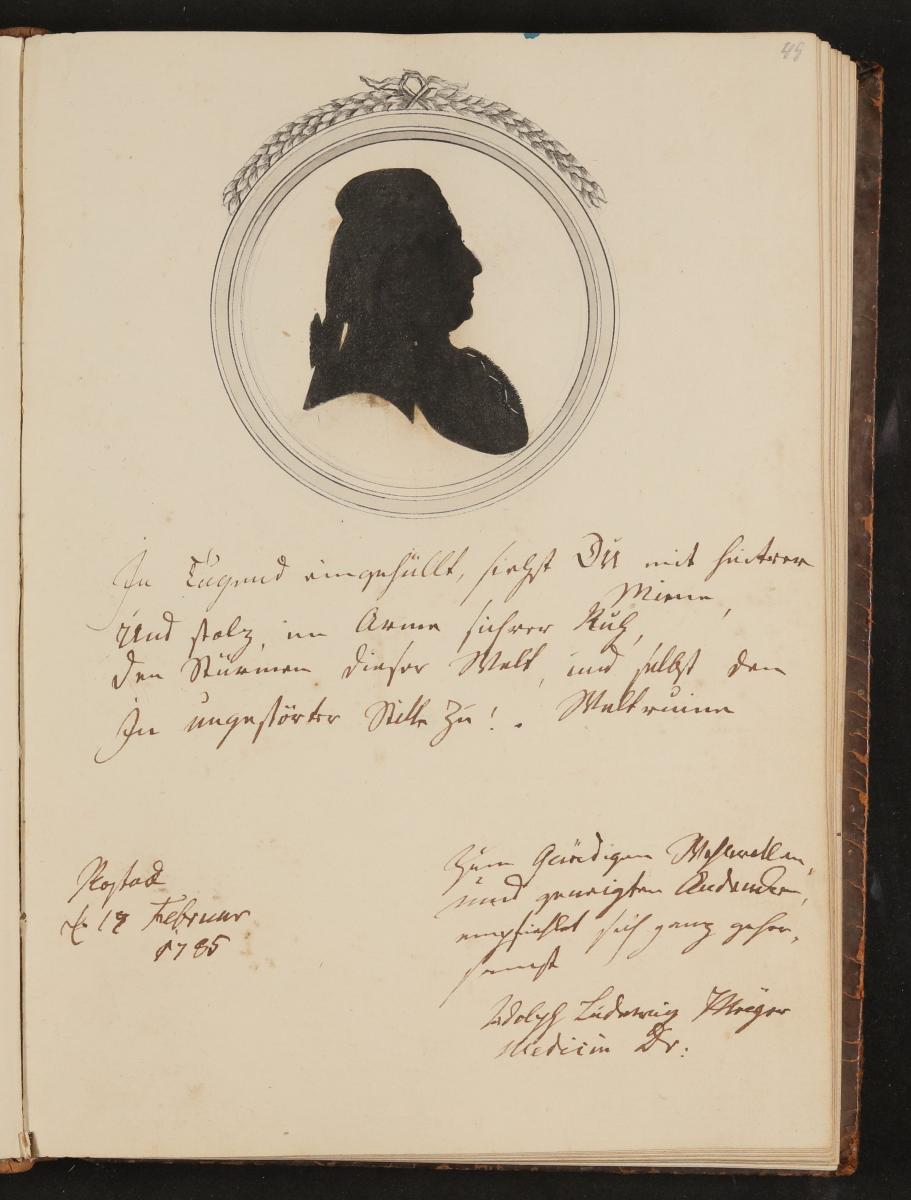 49
In Tugend eingehüllt, siehst Du mit heitrer
Miene,
Und stolz, im Arme sichrer Ruh,
Den Stürmen dieser Welt, und selbst den
Weltruine
In ungestörter Stille zu!
Zum Gnädigen Wohlwollen,
und geneigten Andenken,
empfiehlet sich ganz gehor,
samst
Adolph Ludewig
Medicin Dr:
18 Februar
1785